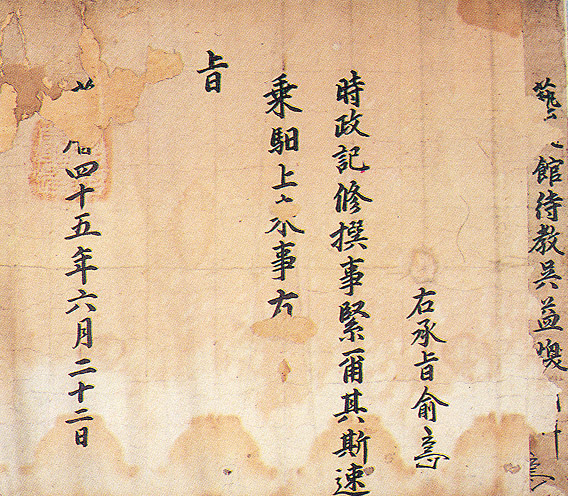 藝館待教吳益煥
右承旨俞
時政記修撰事緊爾其斯速
乘馹上來事有
旨
四十五年六月二十二日